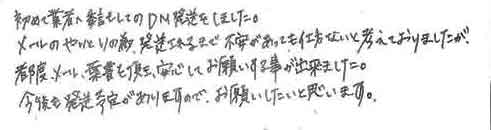 初めて業者へ委託してのDM発送をしました。
メールのやりとりの為、発送されるまで不安があっても仕方ないと考えておりましたが、
都度、メール、葉書も頂き、安心してお願いする事が出来ました。
今後も発送予定がありますので、お願いしたいと思います。